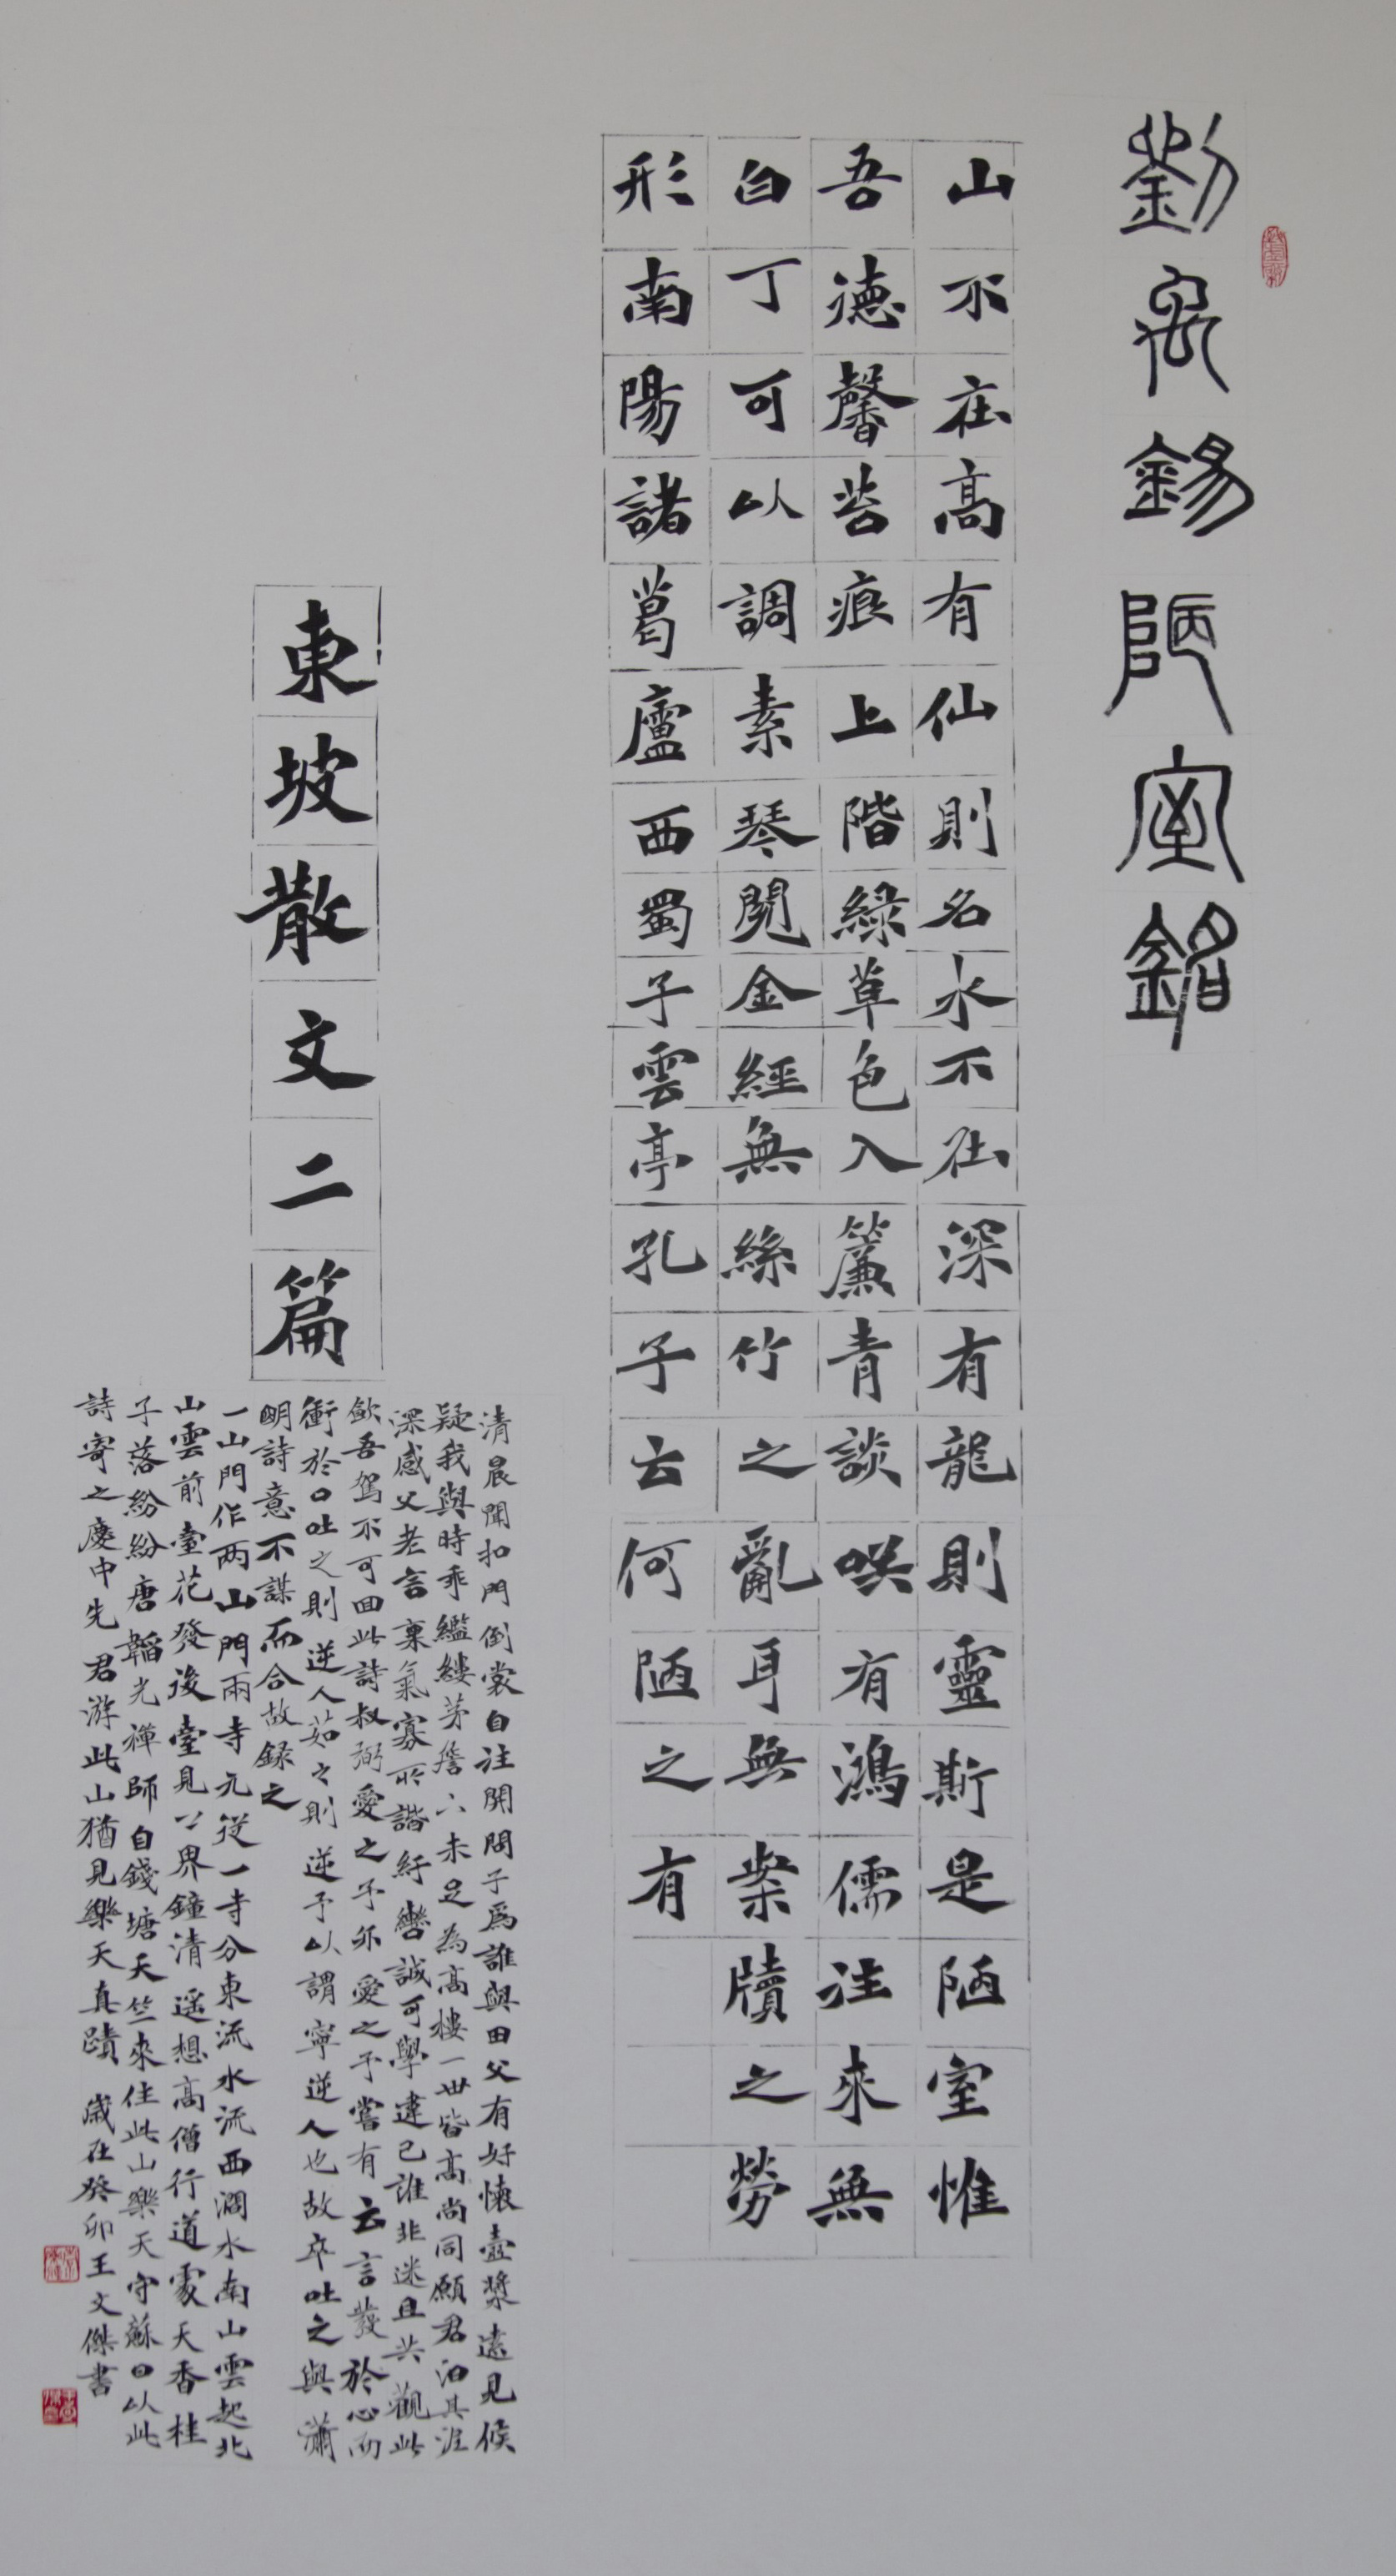 劉禹錫陋室銘
山不在高有仙則名水不在深有龍則靈斯是陋室惟
吾德馨苔痕上階綠草色入簾青談咲有鴻儒往來無
白丁可以調素琴閱金經無絲竹之亂耳無案牘之勞
形南陽諸葛廬西蜀子雲亭孔子云何陋之有
東坡散文二篇
清晨聞扣門倒裳自往開問子爲誰與田父有好懷壺漿遠見候
疑我與時乖繿縷茅簷下未足為高樓一世皆高尚同願君汩其泥
深感父老言稟氣寡所諧紆轡誠可學違己誰非迷且共觀此
飲吾駕不可回此詩叔弼愛之予亦愛之予嘗有云言發於心而
衝於口吐之則逆人茹之則逆予以謂寧逆人也故卒吐之與瀟
明詩意不謀而合故録之
一山門作两山門兩寺元從一寺分東流水流西澗水南山雲起北
山雲前臺花發後臺見上界鐘清遥想高僧行道處天香桂
子落紛紛唐韜光禪師自錢塘天竺來住此山樂天守蘇日以此
詩寄之慶中先君游此山猶見樂天真蹟 歲在癸卯王文傑書